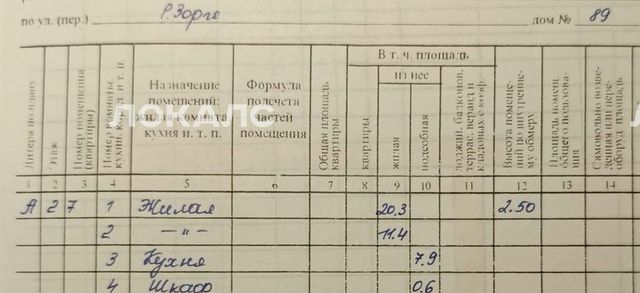 по ул. (пер.) Р. Зорге дом № 89
Литера по плану
Этаж
Номер помещения (квартиры)
Номер комнаты, кухни, корид. и т. п.
Назначение помещений: жилая комната, кухня и т. п.
Формула подсчета частей помещения
Общая площадь квартиры
В т. ч. площадь
квартиры
из нее
жилая
подсобная
лоджий, балконов, террас, веранд и кладовых с коэф.
Высота помещений по внутреннему обмеру
Площадь помещ. общего пользования
Самовольно возведенная или переоборуд. площадь
1 2 3 4 5 6 7 8 9 10 11 12 13 14
А 2 7 1 Жилая 20.3 2.50
2 —"— 11.4
3 Кухня 7.9
4 Шкаф 0.6
ЛОКАЛС